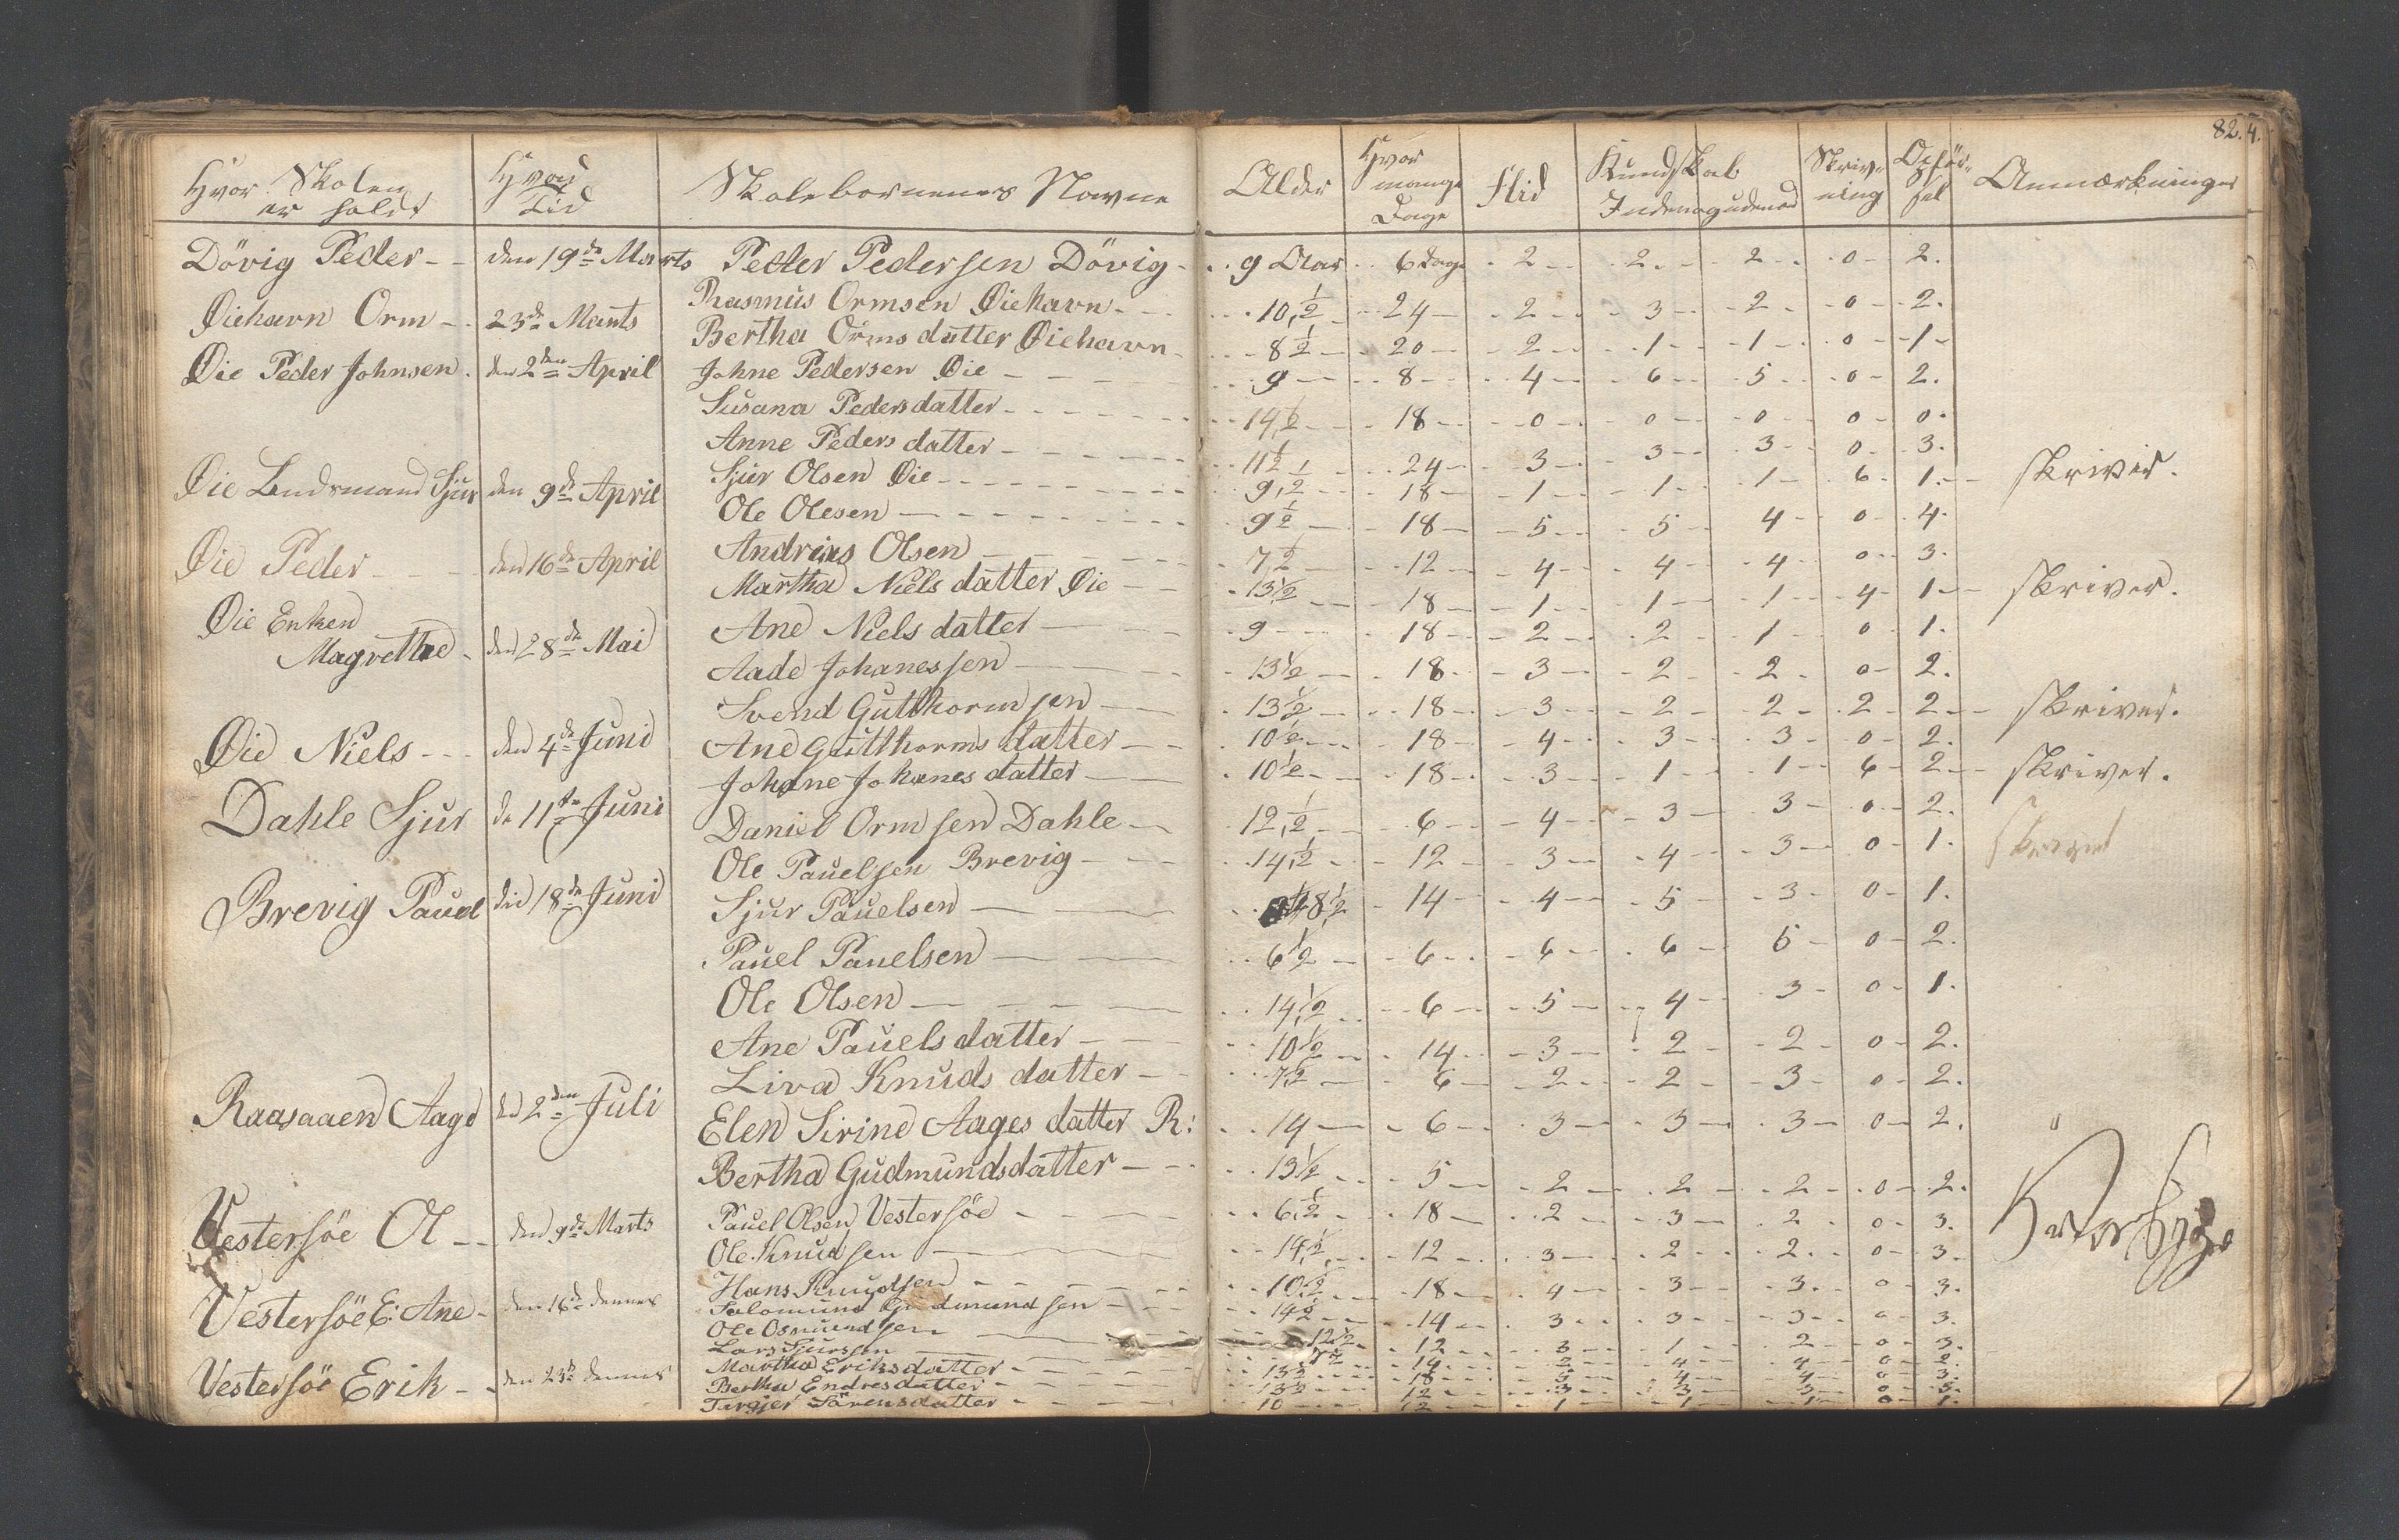 82.4.
Hvor Skolen er holdt | Hvad Tid | Skolebörnenes Navne | Alder | Hvor mange Dage | Flid | Kundskab Inden ogudenad | Skriv-ning | Opför-sel | Anmærkninger
Dövig Peder - - | den 19de Marts | Peder Pedersen Dövig | 9 Aar | 6 Dage | 2 | 2 | 2 | 0 | 2.
Øiehavn Orm - | 23de Marts | Rasmus Ormsen Øiehavn | 10,½ | 24 | 2 | 3 | 2 | 0 | 2.
Bertha Orms datter Øiehavn | 8½ | 20 | 2 | 1 | 1 | 0 | 1
Øie Peder Johnsen | den 2den April | Johne Pedersen Øie | 9 | 8 | 4 | 6 | 5 | 0 | 2.
Susana Pedersdatter | 14,½ | 18 | 0 | 0 | 0 | 0 | 0.
Anne Peders datter | 11½ | 24 | 3 | 3 | 3 | 0 | 3.
Øie Lendsmand Sjur | den 9de April | Sjur Olsen Øie | 9,½ | 18 | 1 | 1 | 1 | 6 | 1. | skriver.
Ole Olesen | 9½ | 18 | 5 | 5 | 4 | 0 | 4.
Øie Peder | den 16de April | Andrias Olsen | 7,½ | 12 | 4 | 4 | 4 | 0 | 3.
Martha Niels datter Øie | 13½ | 18 | 1 | 1 | 1 | 4 | 1 | skriver.
Øie Enken Magrethe | den 28de Mai | Ane Niels datter | 9 | 18 | 2 | 2 | 1 | 0 | 1.
Aade Johanessen | 13½ | 18 | 3 | 2 | 2 | 0 | 2.
Svend Gutthormsen | 13½ | 18 | 3 | 2 | 2 | 2 | 2 | skriver.
Øie Niels - - | den 4de Juni | Ane Gutthorms datter | 10½ | 18 | 4 | 3 | 3 | 0 | 2.
Johane Johanes datter | 10½ | 18 | 3 | 1 | 1 | 6 | 2 | skriver.
Dahle Sjur | de 11te Juni | Daniel Ormsen Dahle | 12,½ | 6 | 4 | 3 | 3 | 0 | 2.
Ole Pauelsen Brevig | 14,½ | 12 | 3 | 4 | 3 | 0 | 1.
Brevig Pauel | den 18de Juni | Sjur Pauelsen | 8½ | 14 | 4 | 5 | 3 | 0 | 1.
Pauel Pauelsen | 6½ | 6 | 6 | 6 | 6 | 0 | 2.
Ole Olsen | 14,½ | 6 | 5 | 4 | 3 | 0 | 1.
Ane Pauels datter | 10½ | 14 | 3 | 2 | 2 | 0 | 2.
Liva Knuds datter | 7½ | 6 | 2 | 2 | 3 | 0 | 2.
Raasaaen Aage | den 2den Juli | Elen Sirine Aages datter R: | 14 | 6 | 3 | 3 | 3 | 0 | 2.
Bertha Gudmundsdatter | 13½ | 5 | 2 | 2 | 2 | 0 | 2.
Vestersöe Ol - - | den 9de Marts | Pauel Olsen Vestersöe | 6,½ | 18 | 2 | 3 | 2 | 0 | 3.
Ole Knudsen | 14,½ | 12 | 3 | 2 | 2 | 0 | 3.
Vestersöe E: Ane | den 16de dennes | Hans Knudsen | 10,½ | 18 | 4 | 3 | 3 | 0 | 3.
Salomund Gudmundsen | 14½ | 14 | 3 | 3 | 3 | 0 | 3.
Ole Osmundsen | 12½ | 12 | 3 | 1 | 2 | 0 | 3.
Lars Sjurssen | 14 | 2 | 4 | 4 | 0 | 2.
Vestersöe Erik - | den 23de dennes | Martha Eriksdatter | 13½ | 18 | 3 | 4 | 4 | 0 | 3.
Bertha Endresdatter | 13½ | 12 | 3 | 3 | 3 | 0 | 3.
Tirgjer Sörensdatter | 10 | 12 | 1 | 1 | 1 | 0 | 1.